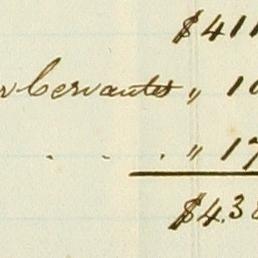 $411
r Cervantes " 10
. . . " 17
$4.38